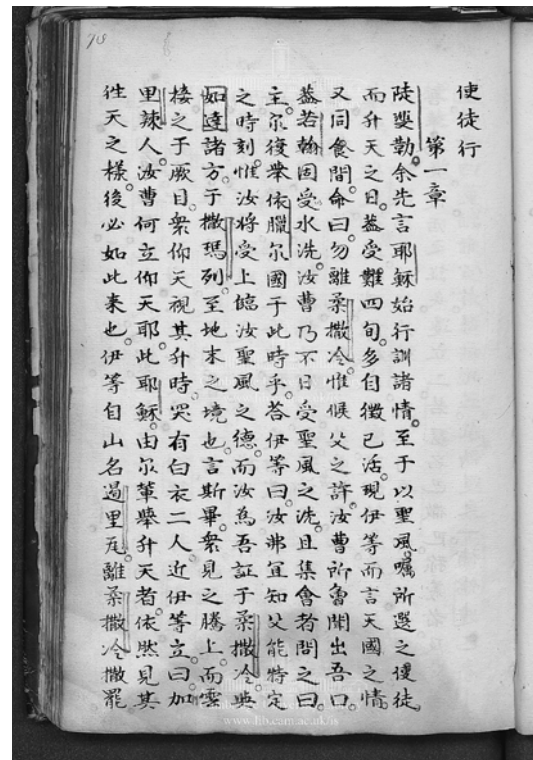 使徒行
第一章
陡斐勒余先言耶穌始行訓諸情至于以聖風囑所選之使徒
而升天之日葢受難四旬多自徵已活現伊等而言天國之情
又同食間命曰勿離柔撒冷惟候父之許汝曹所曾聞出吾口
葢若翰固受水洗汝曹乃不日受聖風之洗且集會者問之曰
主尔復舉依臘尔國于此時乎荅伊等曰汝弗宜知父能特定
之時刻惟汝將受上臨汝聖風之德而汝為吾証于柔撒冷與
如達諸方于撒瑪列至地末之境也言斯畢衆見之騰上而雲
接之于厥目衆仰天視其升時哭有白衣二人近伊等立曰加
里辣人汝曹何立仰天耶此耶穌由尔輩舉升天者依然見其
徃天之様後必如此来也伊等自山名過里瓦離柔撒冷撒罷
78